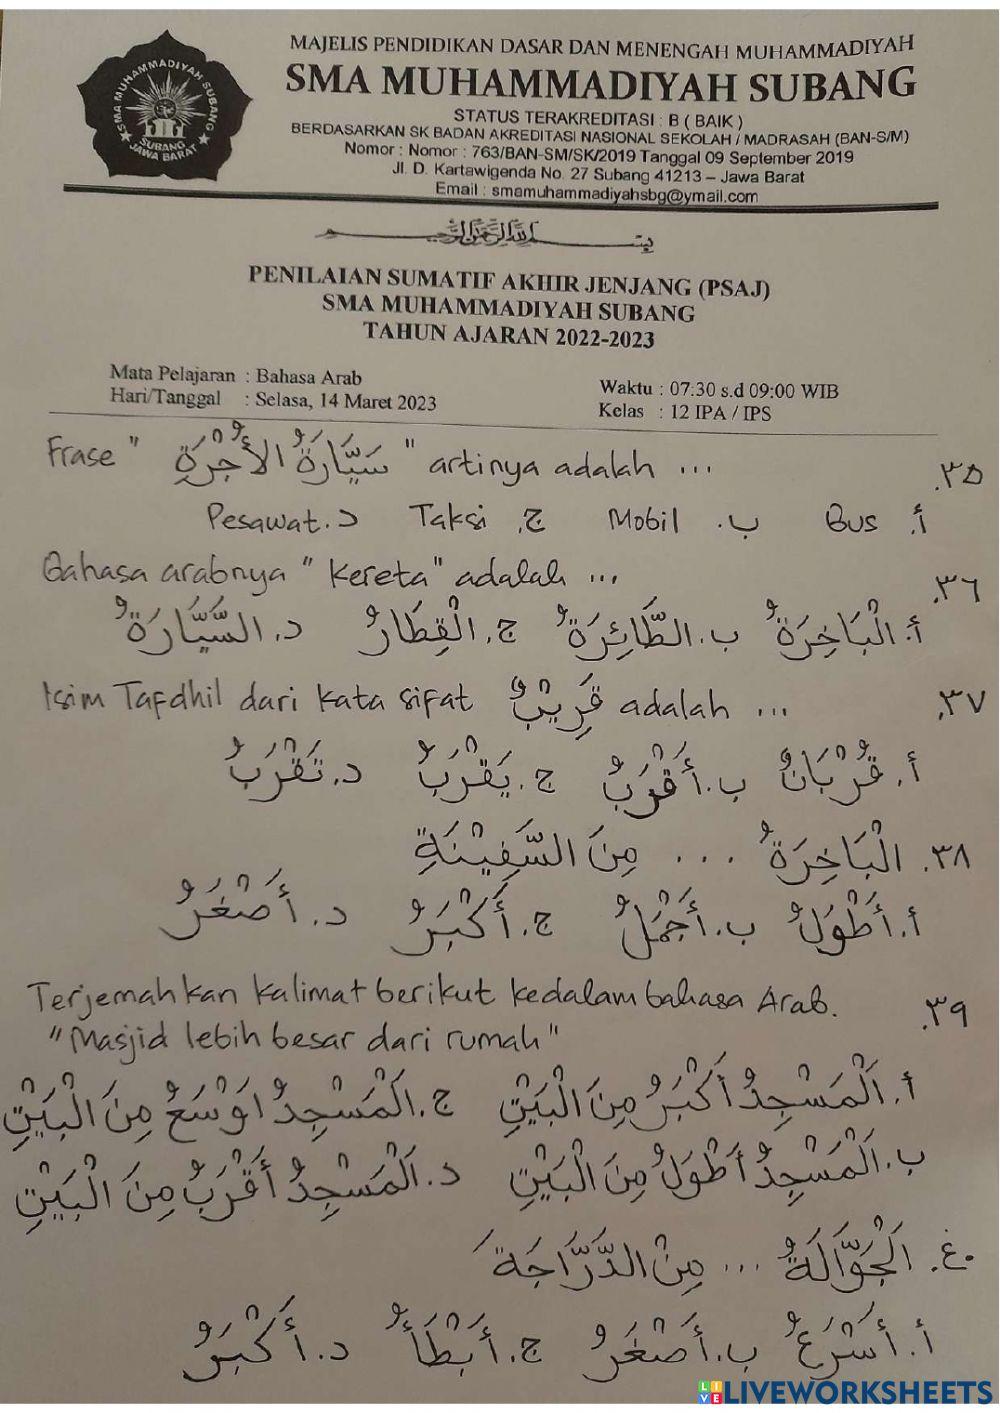 MAJELIS PENDIDIKAN DASAR DAN MENENGAH MUHAMMADIYAH
SMA MUHAMMADIYAH SUBANG
STATUS TERAKREDITASI : B ( BAIK )
BERDASARKAN SK BADAN AKREDITASI NASIONAL SEKOLAH / MADRASAH (BAN-S/M)
Nomor : Nomor : 763/BAN-SM/SK/2019 Tanggal 09 September 2019
Jl. D. Kartawigenda No. 27 Subang 41213 – Jawa Barat
Email : smamuhammadiyahsbg@ymail.com
SMA MUHAMMADIYAH SUBANG
SUBANG
JAWA BARAT
بسم الله الرحمن الرحيم
PENILAIAN SUMATIF AKHIR JENJANG (PSAJ)
SMA MUHAMMADIYAH SUBANG
TAHUN AJARAN 2022-2023
Mata Pelajaran : Bahasa Arab
Hari/Tanggal : Selasa, 14 Maret 2023
Waktu : 07:30 s.d 09:00 WIB
Kelas : 12 IPA / IPS
٣٥. Frase " سَيَّارَةُ الأُجْرَةِ " artinya adalah ...
أ. Bus ب. Mobil ج. Taksi د. Pesawat
٣٦. Bahasa arabnya "Kereta" adalah ...
أ. الْبَاخِرَةُ ب. الطَّائِرَةُ ج. الْقِطَارُ د. السَّيَّارَةُ
٣٧. Isim Tafdhil dari kata sifat قَرِيْبٌ adalah ...
أ. قُرْبَانٌ ب. أَقْرَبُ ج. يَقْرَبُ د. تَقْرَبُ
٣٨. الْبَاخِرَةُ ... مِنَ السَّفِيْنَةِ
أ. أَطْوَلُ ب. أَجْمَلُ ج. أَكْبَرُ د. أَصْغَرُ
٣٩. Terjemahkan kalimat berikut kedalam bahasa Arab.
"Masjid lebih besar dari rumah"
أ. اَلْمَسْجِدُ أَكْبَرُ مِنَ الْبَيْتِ ج. اَلْمَسْجِدُ اَوْسَعُ مِنَ الْبَيْتِ
ب. اَلْمَسْجِدُ أَطْوَلُ مِنَ الْبَيْتِ د. اَلْمَسْجِدُ أَقْرَبُ مِنَ الْبَيْتِ
٤٠. اَلْجَوَّالَةُ ... مِنَ الدَّرَّاجَةَ
أ. أَسْرَعُ ب. أَصْغَرُ ج. أَبْطَأُ د. أَكْبَرُ
LIVEWORKSHEETS